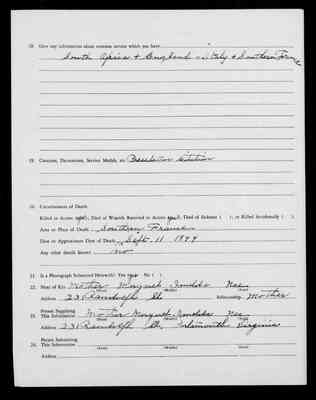 18. Give any information about overseas service which you have
South Africa & England - Italy & Southern France
19. Citations, Decorations, Service Medals, etc. Presidential Citation
20. Circumstances of Death:
Killed in Action (yes), Died of Wounds Received in Action (yes), Died of Sickness ( ), or Killed Accidentally ( ).
Area or Place of Death Southern France
Date or Approximate Date of Death Sept. 11 1944
Any other death factors no
21. Is a Photograph Submitted Herewith? Yes yes No ( )
22. Next of Kin Mother
(First) (Middle) (Last)
Address Randolph St. Relationship Mother
Person Supplying
23. This Information Mother
(First) (Middle) (Last)
Address Randolph St, Portsmouth Virginia
Person Submitting
24. This Information
(First) (Middle) (Last)
Address